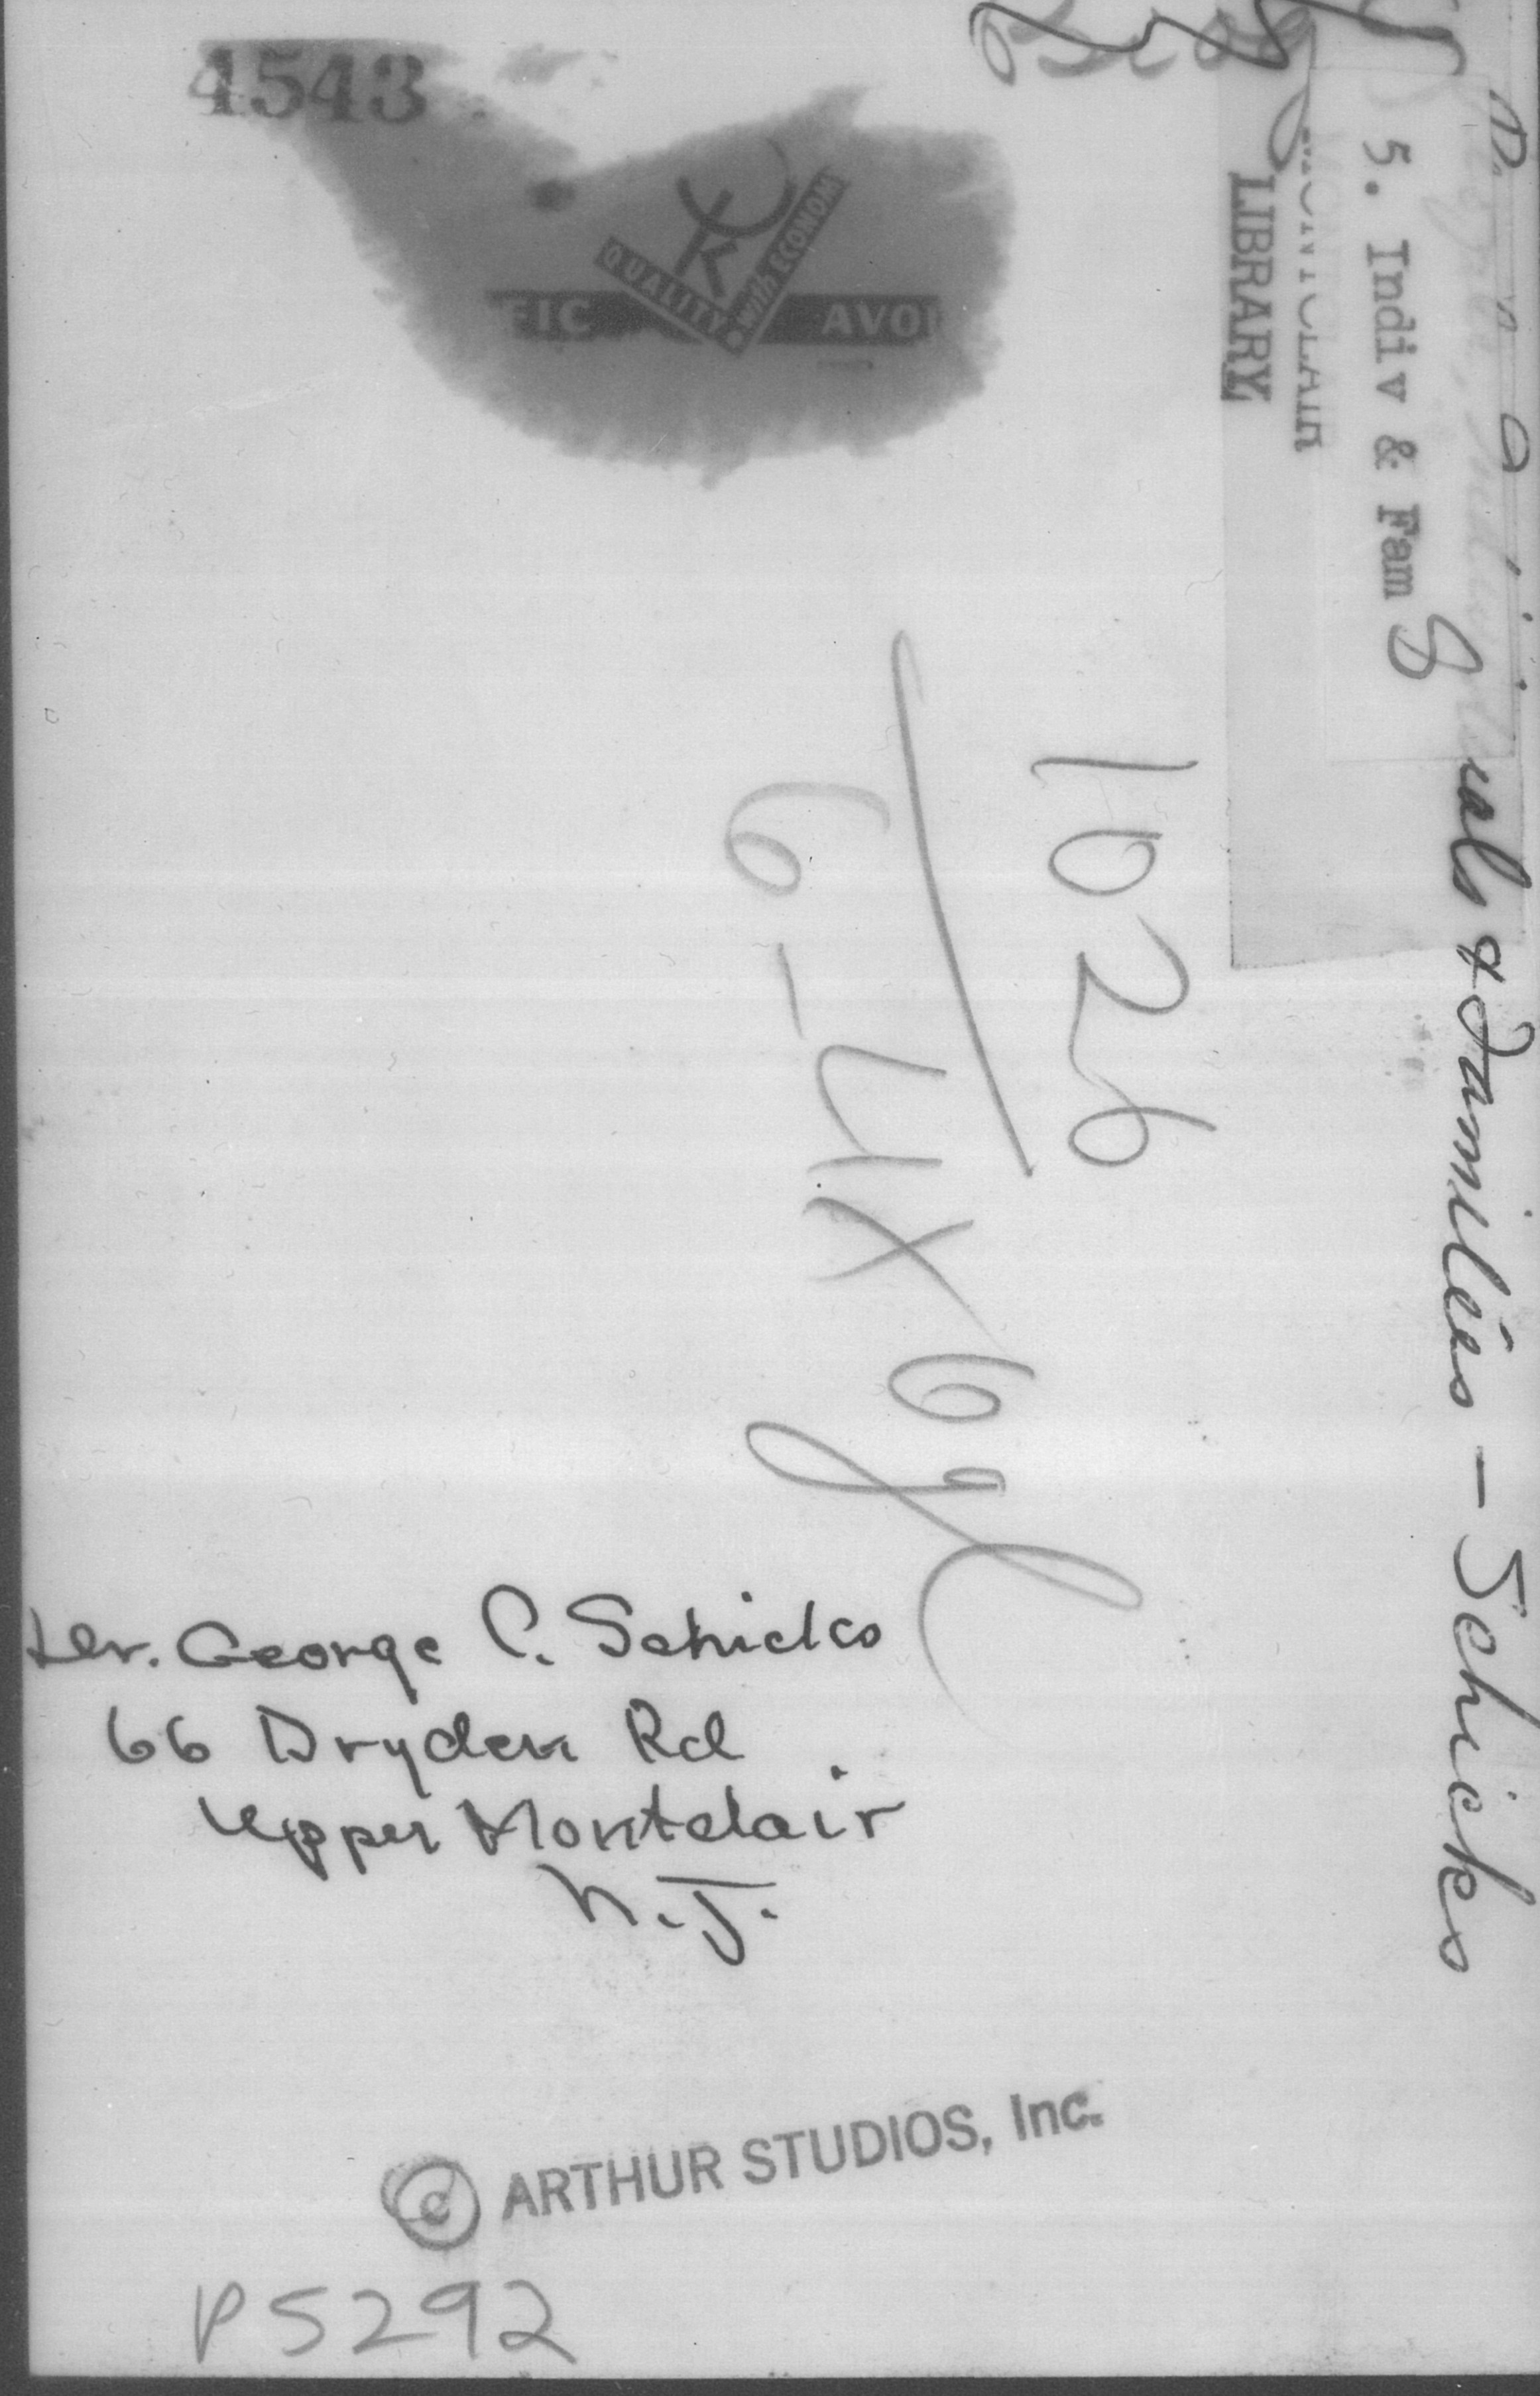 4543
QUALITY with ECONOM
FIC AVO
MONTCLAIR
LIBRARY
5. Indiv & Fam
Individuals & Families - Schicks
1026
6-4x6gl
Dr. George C. Schicks
66 Dryden Rd
Upper Montclair
N.J.
© ARTHUR STUDIOS, Inc.
P5292